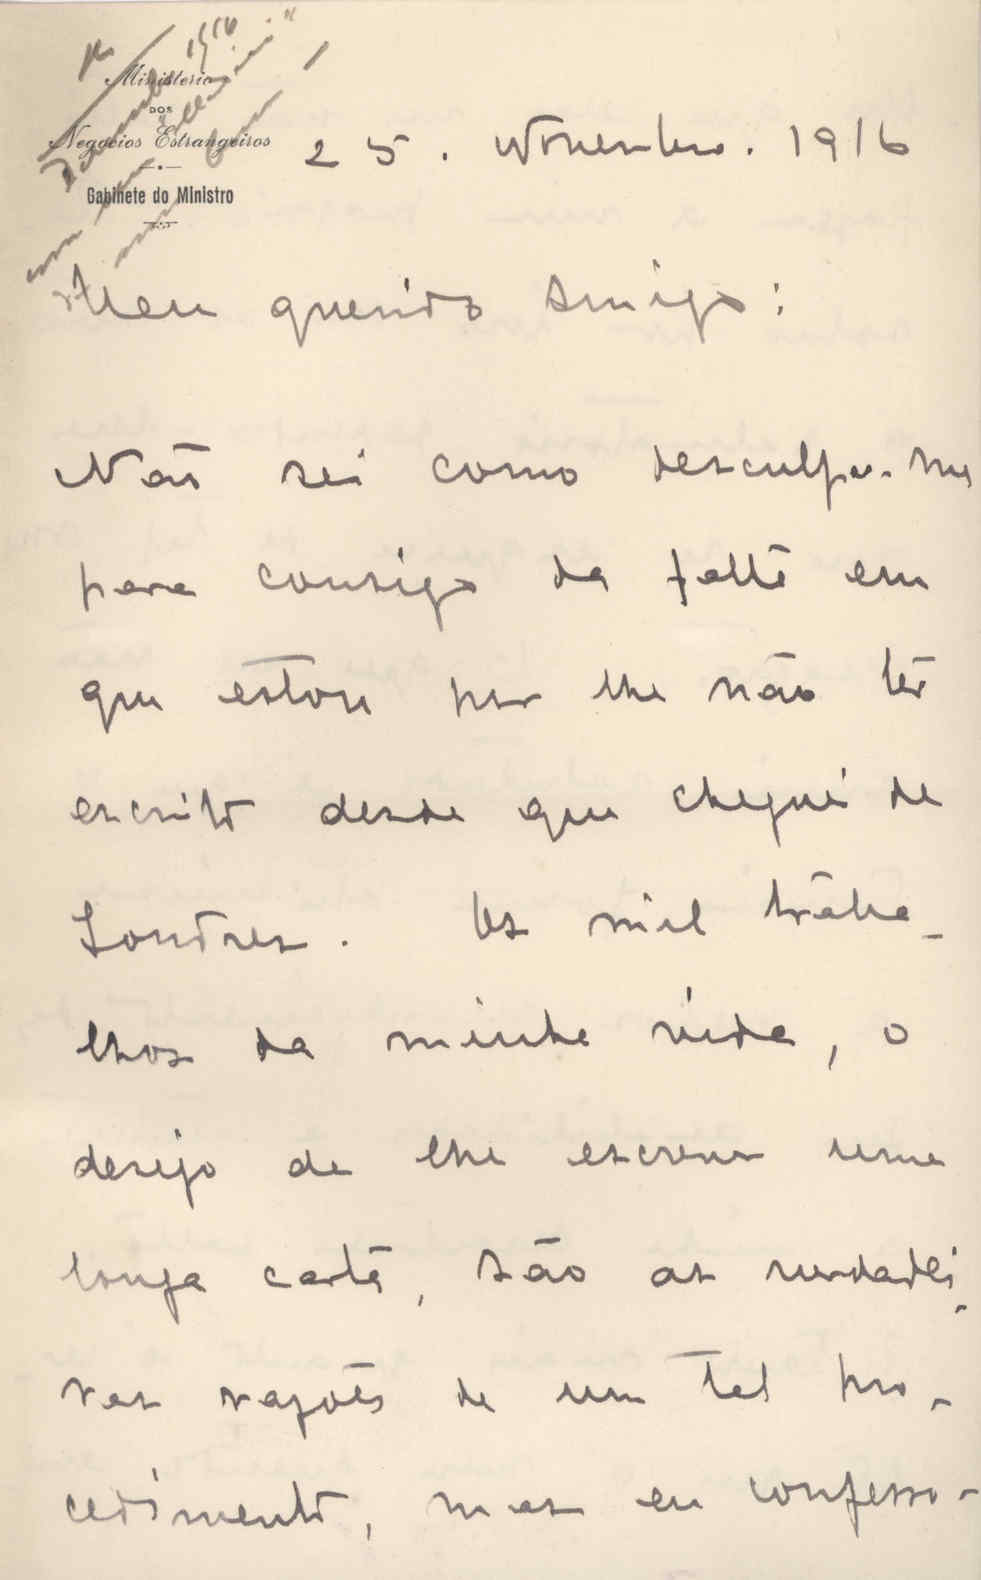 Ministerio
DOS
Negocios Estrangeiros
Gabinete do Ministro
25. Novembro. 1916
Meu querido Amigo:
Não sei como desculpar-me
para consigo da falta em
que estou por lhe não ter
escrito desde que cheguei de
Londres. Os mil traba-
lhos da minha vida, o
desejo de lhe escrever uma
longa carta, são as verdadei-
ras razões de um tal pro-
cedimento, mas eu confesso-